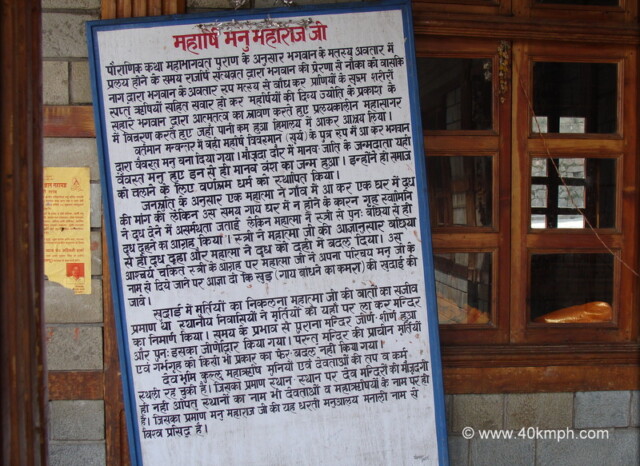 महार्षि मनु महाराज जी
पौराणिक कथा महाभागवत पुराण के अनुसार भगवान के मतस्य अवतार में
प्रलय होने के समय राजर्षि सत्यव्रत द्वारा भगवान की प्रेरणा से नौका को वासकि
नाग द्वारा भगवान के अवतार रूप मत्स्य से बाँध कर प्राणियों के सूक्ष्म शरीरों
सप्त ऋषियों सहित सवार हो कर महर्षियों की दिव्य ज्योति के प्रकाश के
सहारे भगवान द्वारा आत्मतत्व का श्रावण करते हुए प्रलयकालीन महासागर
में विचरण करते हुए जहाँ पानी कम हुआ हिमालय में आकर आश्रय लिया।
वर्तमान मन्वन्तर में वही महर्षि विवस्मान (सूर्य) के पुत्र रूप में आ कर भगवान
द्वारा वैवस्त मनु बना दिया गया। मौजूदा दौर में मानव जाति के जन्मदाता यही
वैवस्त मनु हुए इन से ही मानव वंश का जन्म हुआ। इन्होंने ही समाज
को चलाने के लिए वर्णाश्रम धर्म को स्थापित किया।
जनश्रुति के अनुसार एक महात्मा ने गाँव में आ कर एक घर में दूध
की मांग की लेकिन उस समय गाय घर में न होने के कारण गृह स्वामिनि
ने दूध देने में असमर्थता जताई लेकिन महात्मा ने स्त्री से पुनः बछिया से ही
दूध दूहने का आग्रह किया। स्त्री ने महात्मा जी की आज्ञानुसार बछिया
से ही दूध दूहा और महात्मा ने दूध को दही में बदल दिया। उस
आश्चर्य चकित स्त्री के आग्रह पर महात्मा जी ने अपना परिचय मनु जी के
नाम से दिये जाने पर आज्ञा दी कि खुड (गाय बाँधने का कमरा) की खुदाई की
जावे।
खुदाई में मूर्तियों का निकलना महात्मा जी की वार्ता का सजीव
प्रमाण था स्थानीय निवासियों ने मूर्तियों को यहाँ पर ला कर मन्दिर
का निर्माण किया। समय के प्रभाव से पुराना मन्दिर जीर्ण-शीर्ण हुआ
और पुनः इसका जीर्णोद्वार किया गया। परन्तु मन्दिर की प्राचीन मूर्तियों
एवं गर्भगृह को किसी भी प्रकार का फेर-बदल नहीं किया गया।
देव भूमि कुल्लू महाऋषि मुनियों एवं देवताओं की तप व कर्म
स्थली रह चुकी है। जिसका प्रमाण स्थान-स्थान पर देव मन्दिरों की मौजूदगी
ही नहीं अपितु स्थानों का नाम भी देवताओं व महाऋषियों के नाम पर ही
है। जिसका प्रमाण मनु महाराज जी की यह धरती मनुआलय मनाली नाम से
विश्व प्रसिद्ध है।
© www.40kmph.com